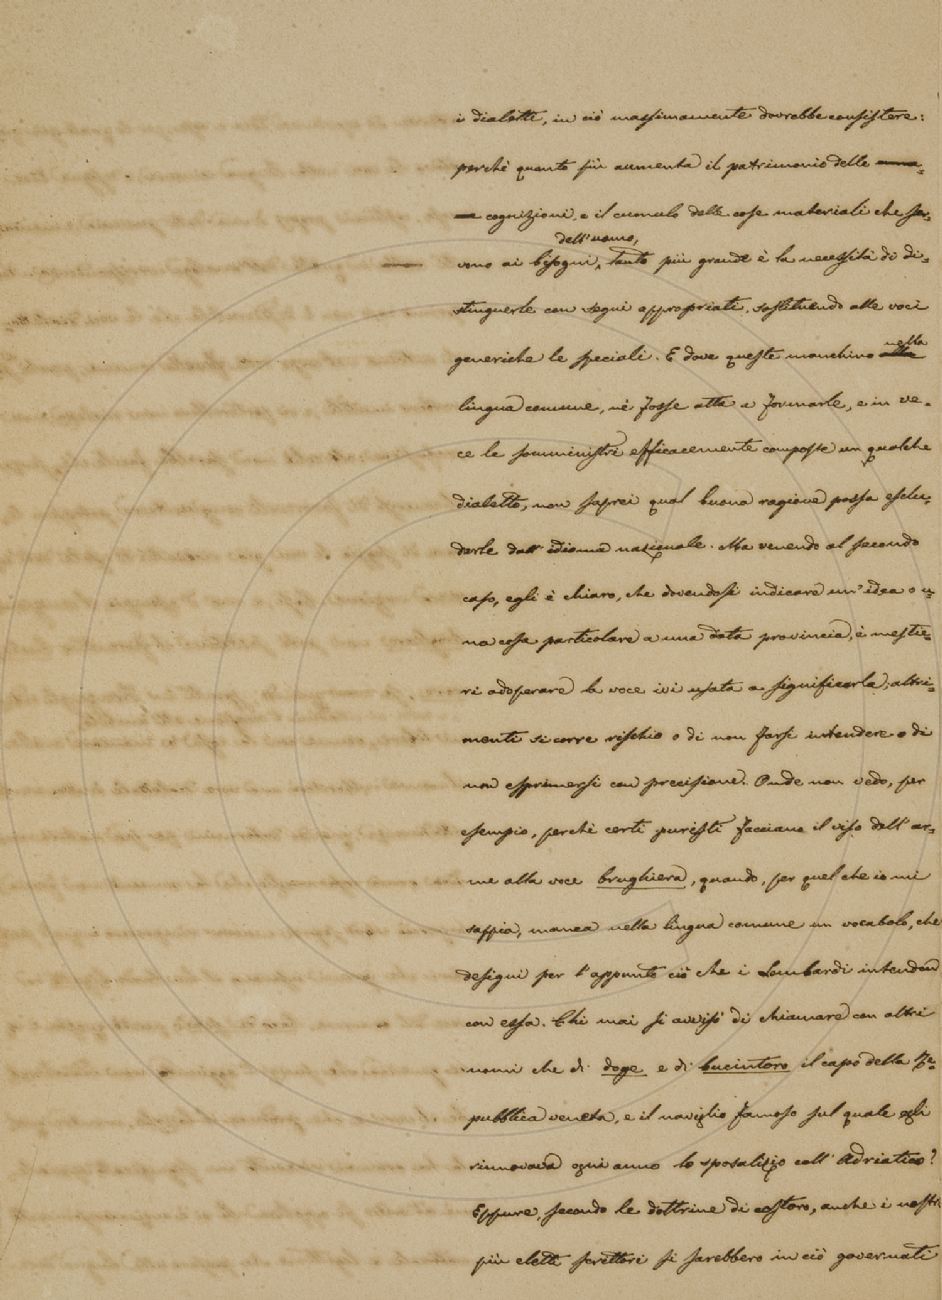 i dialetti, in ciò massimamente dovrebbe consistere:
perchè quanto più aumenta il patrimonio delle
cognizioni, e il cumulo delle cose materiali che ser=
dell'uomo,
vono ai bisogni, tanto più grande è la necessità di di=
stinguerle con segni appropriati, sostituendo alle voci
nella
generiche le speciali. E dove queste manchino alla
lingua comune, nè fosse atta a formarle, e in ve=
ce le somministri efficacemente composte un qualche
dialetto, non saprei qual buona ragione possa esclu=
derle dall'idioma nazionale. Ma venendo al secondo
caso, egli è chiaro, che dovendosi indicare un'idea o u=
na cosa particolare a una data provincia, è mestie=
ri adoperare la voce ivi usata a significarla; altri=
menti si corre rischio o di non farsi intendere o di
non esprimersi con precisione. Onde non vedo, per
esempio, perchè certi puristi facciano il viso dell'ar=
me alla voce brughiera, quando, per quel che io mi
sappia, manca nella lingua comune un vocabolo, che
designi per l'appunto ciò che i Lombardi intendon
con essa. Chi mai si avvisò di chiamare con altri
nomi che di doge e di bucintoro il capo della Re=
pubblica veneta, e il naviglio famoso sul quale egli
rinnovava ogni anno lo sposalizio coll'Adriatico?
Eppure, secondo le dottrine di costoro, anche i nostri
più eletti scrittori si sarebbero in ciò governati